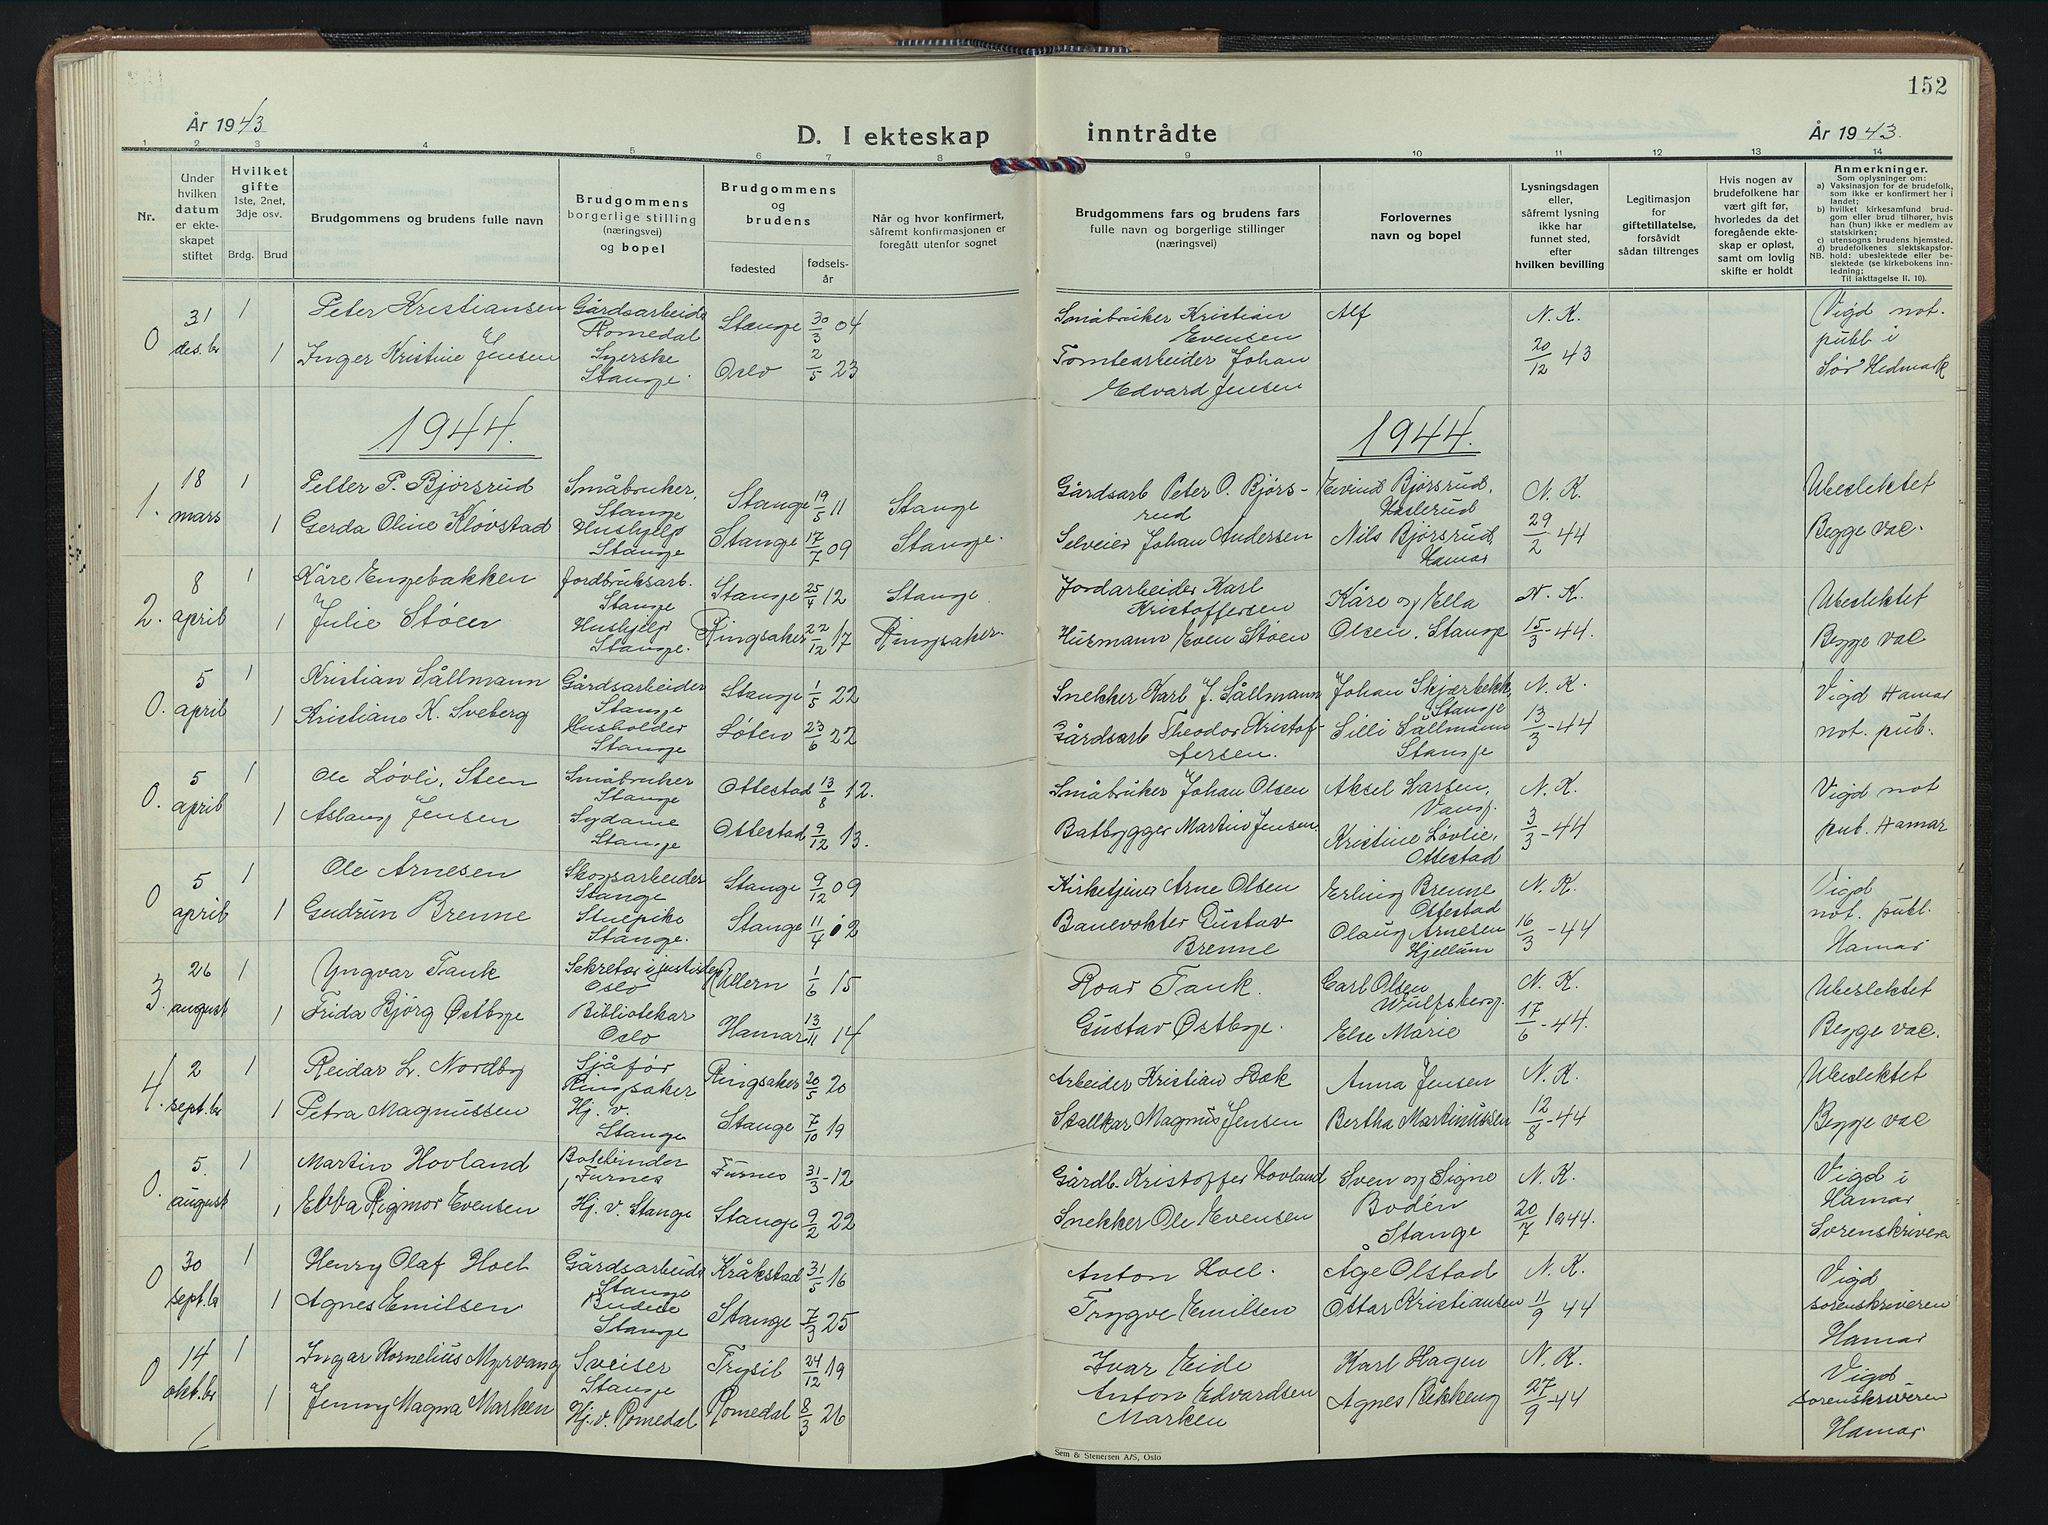 152
År 1943
D. I ekteskap inntrådte
År 1943.
1 2 3 4 5 6 7 8 9 10 11 12 13 14
Nr.
Under hvilken datum er ekteskapet stiftet
Hvilket gifte 1ste, 2net, 3dje osv.
Brdg. Brud
Brudgommens og brudens fulle navn
Brudgommens borgerlige stilling (næringsvei) og bopel
Brudgommens og brudens
fødested
fødsels-år
Når og hvor konfirmert, såfremt konfirmasjonen er foregått utenfor sognet
Brudgommens fars og brudens fars fulle navn og borgerlige stillinger (næringsvei)
Forlovernes navn og bopel
Lysningsdagen eller, såfremt lysning ikke har funnet sted, efter hvilken bevilling
Legitimasjon for giftetillatelse, forsåvidt sådan tiltrenges
Hvis nogen av brudefolkene har vært gift før, hvorledes da det foregående ekteskap er opløst, samt om lovlig skifte er holdt
Anmerkninger.
Som oplysninger om:
a) Vaksinasjon for de brudefolk, som ikke er konfirmert her i landet;
b) hvilket kirkesamfund brudgom eller brud tilhører, hvis han (hun) ikke er medlem av statskirken;
c) utensogns brudens hjemsted.
d) brudefolkenes slektskapsfor-
NB. hold: ubeslektede eller beslektede (se kirkebokens innledning;
Til iakttagelse II. 10).
0 31 des.br 1 Peter Kristiansen Gårdsarbeide Romedal Stange 30/3 04 Småbruker Kristian Evensen Alf N. K. Vigd not. publ i
1 Inger Kristine Jensen Syerske Stange. Oslo 2/5 23 Tomtearbeider Johan Edvard Jensen 20/12 43 Sør Hedmark
1944. 1944.
1. 18 mars 1 Petter P. Bjørsrud Småbruker, Stange Stange 19/5 11 Stange Gårdsarb Peter O. Bjørsrud Eivind Bjørsrud, Haslerud N. K. Ubeslektet
1 Gerda Oline Kløvstad Hushjelp Stange Stange 17/7 09 Stange. Selveier Johan Andersen Nils Bjørsrud, Hamar 29/2 44 Begge vac.
2. 8 april 1 Kåre Engebakken Jordbruksarb. Stange Stange 25/4 12 Stange Jordarbeider Karl Kristoffersen Kåre og Ella N. K. Ubeslektet
1 Julie Støen Hushjelp Stange. Ringsaker 22/12 17 Ringsaker. Husmann Even Støen Olsen, Stange 15/3-44. Begge vac
0. 5 april 1 Kristian Sållmann Gårdsarbeider Stange Stange 1/5 22 Snekker Karl J. Sållmann Johan Skjærbekk, Stange N. K. Vigd Hamar
1 Kristiane K. Sveberg Husholder Stange Løten 23/6 22 Gårdsarb Theodor Kristoffersen. Silli Sållmann Stange 13/3-44 not. pub.
0. 5 april 1 Ole Løvli, Steen Småbruker Stange Ottestad 13/8 12. Småbruker Johan Olsen Aksel Larsen, Vang. N. K. Vigd not
1 Aslaug Jensen Sydame Stange Ottestad 9/12 13. Båtbygger Martin Jensen. Kristine Løvlie, Ottestad 3/3-44 pub. Hamar
0 5 april 1 Ole Arnesen Skogsarbeider Stange Stange 9/12 09 Kirketjener Arne Olsen Erling Brenne Ottestad N. K. Vigd
1 Gudrun Brenne Stuepike Stange. Stange 11/4 12 Banevokter Gustav Brenne Olaug Arnesen Hjellum 16/3-44 not. publ. Hamar
3. 26 august 1 Yngvar Tank Sekretær i justisdep Oslo Ullern 1/6 15 Roar Tank. Carl Olsen Wulfsberg. N. K. Ubeslektet
1 Frida Bjørg Østbye Bibliotekar Oslo Hamar 13/11 14 Gustav Østbye. Else Marie 17/6-44. Begge vac.
4. 2 sept.br 1 Reidar L. Nordby Sjåfør Ringsaker Ringsaker 20/5 20 Arbeider Kristian Bæk Anna Jensen N. K. Ubeslektet
1 Petra Magnussen Hj. v. Stange Stange 7/10 19 Stallkar Magnus Jensen Bertha Martinussen 12/8-44 Begge vac
0. 5. august 1 Martin Hovland Bokbinder Furnes Furnes 31/3-12 Gårdb. Kristoffer Hovland Sven og Signe N. K. Vigd i Hamar
1 Ebba Rigmor Evensen Hj. v. Stange Stange 9/2 22 Snekker Ole Evensen Bodén Stange 20/7 1944. Sorenskriveren
0 30 sept.br 1 Henry Olaf Hoel Gårdsarbeide Stange Kråkstad 31/5 16 Anton Hoel. Åge Olstad N. K. Vigd
1 Agnes Emilsen Budeie Stange Stange 7/3 25 Trygve Emilsen Ottar Kristiansen 11/9 44 sorenskriveren Hamar
0 14 okt.br 1 Ingar Kornelius Myrvang Sveiser Stange Trysil 24/12 19 Ivar Eide Karl Hagen N. K. Vigd
1 Jenny Magna Marken Hj. v. Romedal Romedal 8/3 26 Anton Edvardsen Marken Agnes Rikkeng 27/9-44 sorenskriveren Hamar
Sem & Stenersen A/S, Oslo